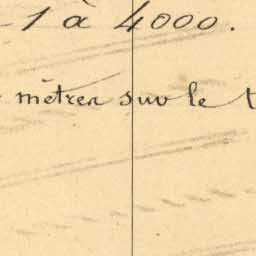 1 à 4000.
mètres sur le